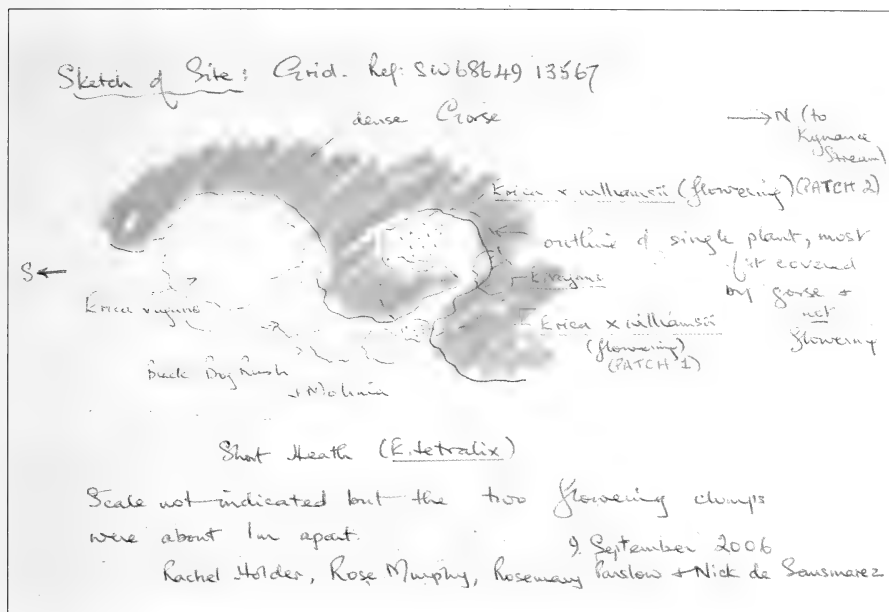 Sketch of Site: Grid. Ref: SW68649 13567
dense Gorse
→ N (to
Kynance
Stream)
Erica x williamsii (flowering) (PATCH 2)
outline of single plant, most
of it covered
by gorse +
not
flowering
S ←
E. vagans
Erica vagans
Erica x williamsii
(flowering)
(PATCH 1)
Black Bog Rush
+ Molinia
Short Heath (E. tetralix)
Scale not indicated but the two flowering clumps
were about 1m apart.
9 September 2006
Rachel Holder, Rose Murphy, Rosemary Parslow + Nick de Sausmarez